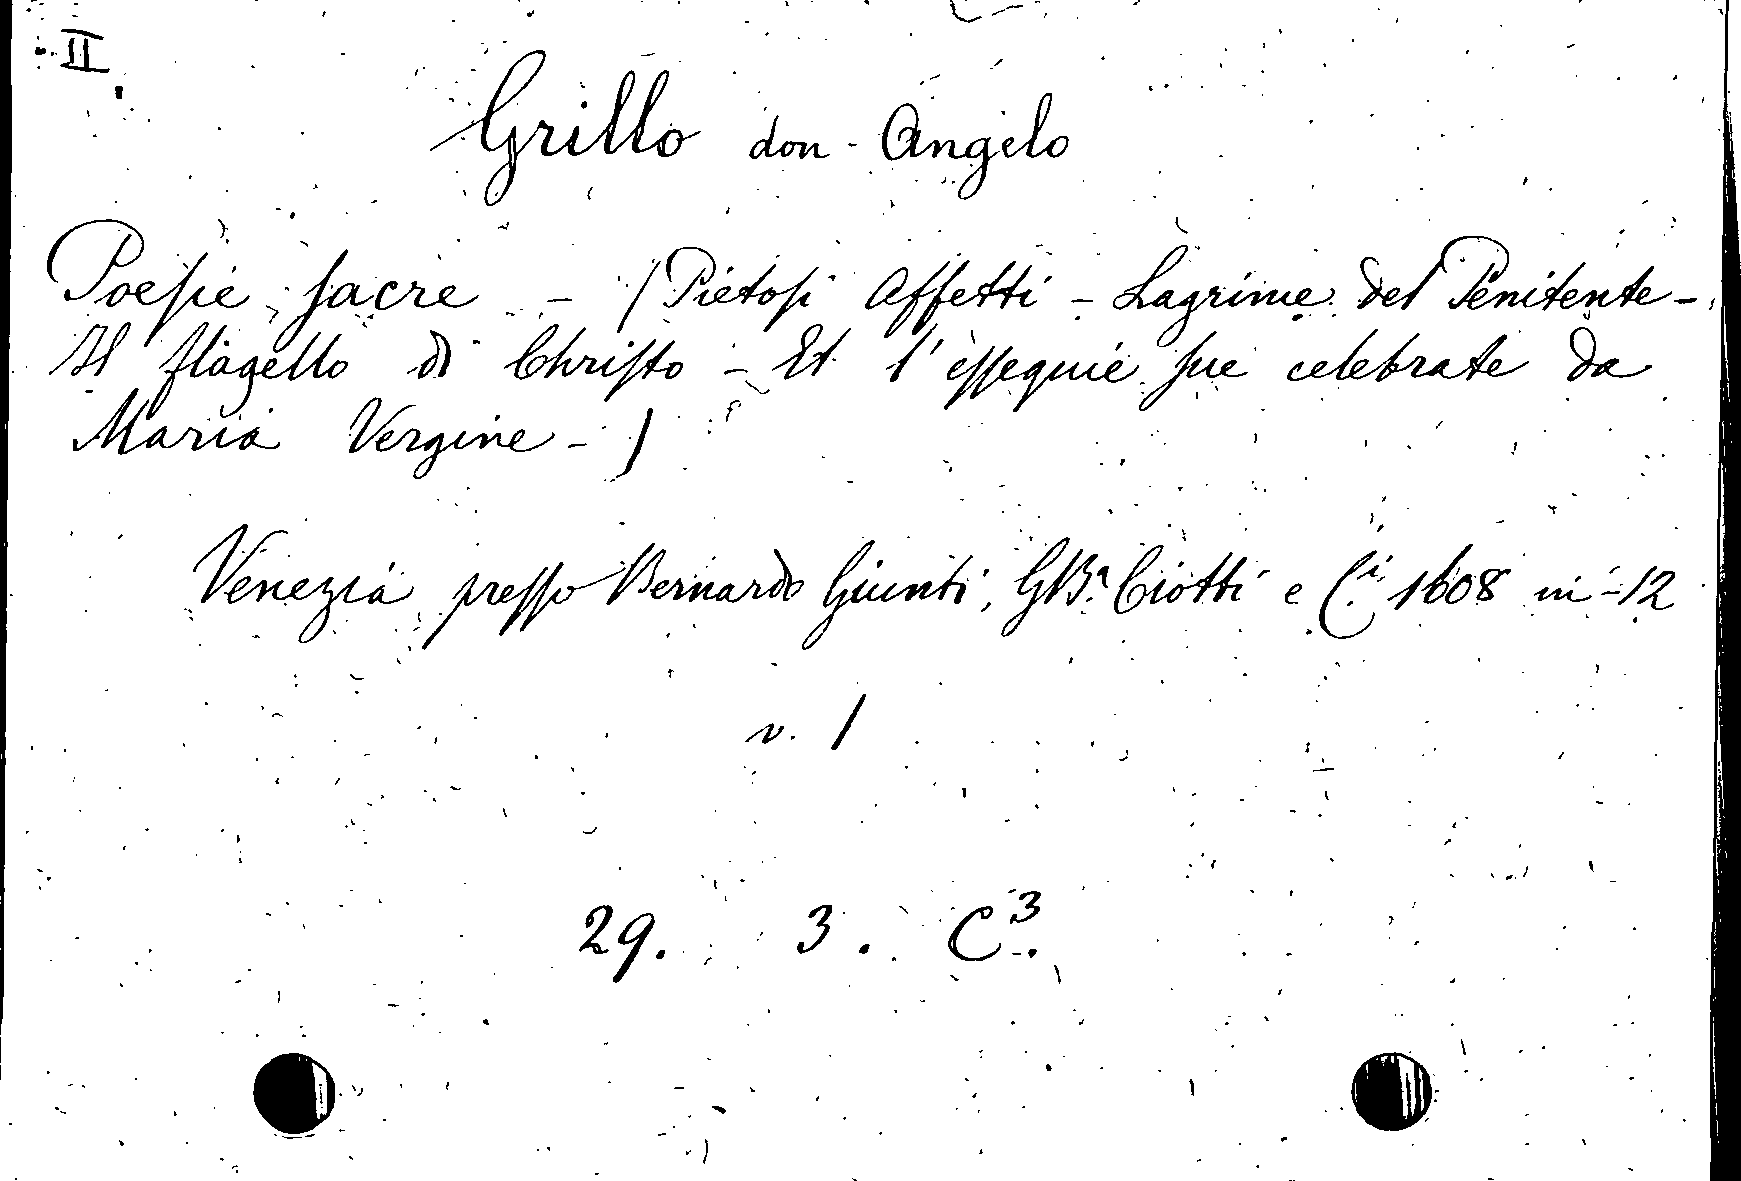 II
Grillo don Angelo
Poesie sacre - (Pietosi Affetti - Lagrime del Penitente -
Il flagello di Christo - Et l'essequie sue celebrate da
Maria Vergine - )
Venezia presso Bernardo Giunti, GBa. Ciotti e C.i 1608 in-12
v. 1
29. 3. C3.